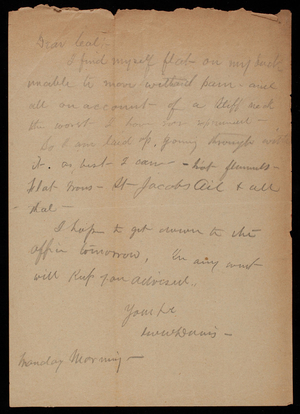 Dear Col -
I find myself flat on my back
unable to move without pain - and
all on account of a stiff neck
the worst I have ever
So I am laid up, going through with
it as best I can - hot flannels -
flat irons - St Jacobs Oil & all
that -
I hope to get down to the
office tomorrow, In any event
will keep you advised.
Yours &c
Monday Morning -